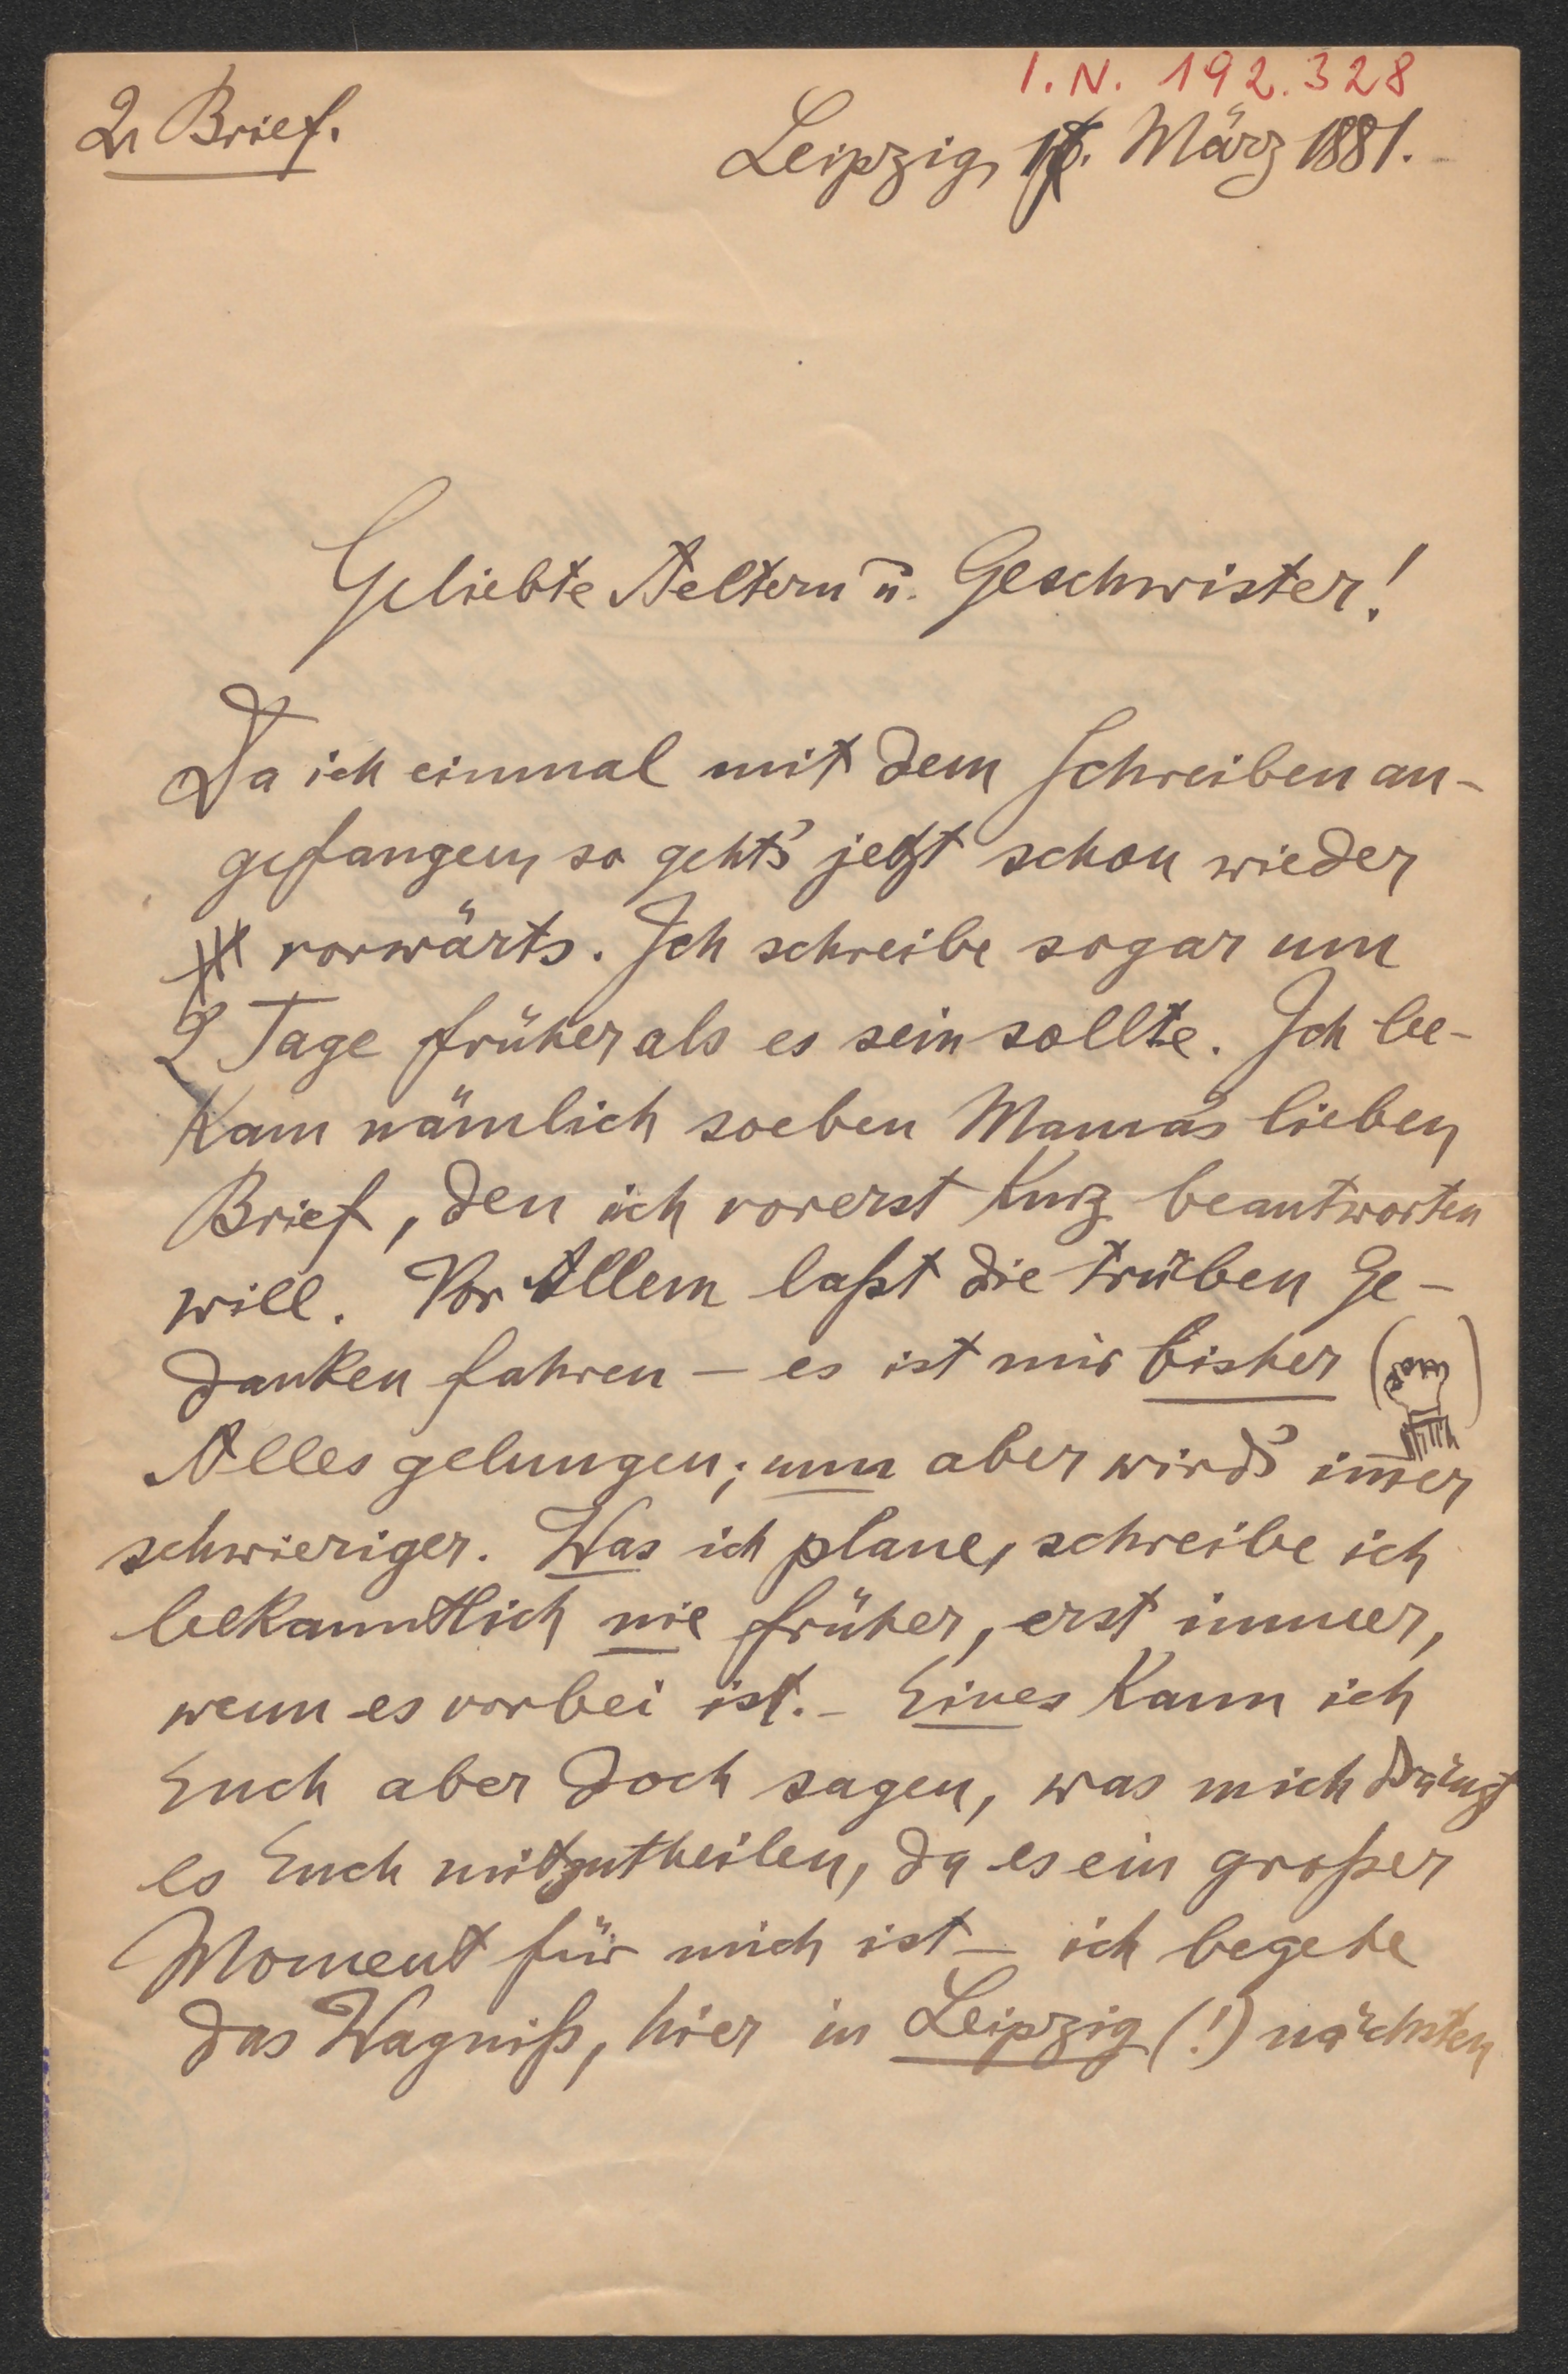 I.N. 192.328
2. Brief.
Leipzig, März 1881.
Geliebte Aeltern u. Geschwister!
Da ich einmal mit dem Schreiben an-
gefangen, so geht's jetzt schon wieder
vorwärts. Ich schreibe sogar um
2 Tage früher als es sein sollte. Ich be-
kam nämlich soeben Mama's lieben
Brief, den ich vorerst kurz beantworten
will. Vor Allem laßt die trüben Ge-
danken fahren – es ist mir bisher ( )
Alles gelungen; nun aber wird's im̅er
schwieriger. Was ich plane, schreibe ich
bekanntlich nie früher, erst immer,
wenn es vorbei ist. – Eines kann ich
Euch aber doch sagen, was mich drängt
es Euch mitzutheilen, da es ein großer
Moment für mich ist – ich begehe
das Wagniß, hier in Leipzig (!) nächsten